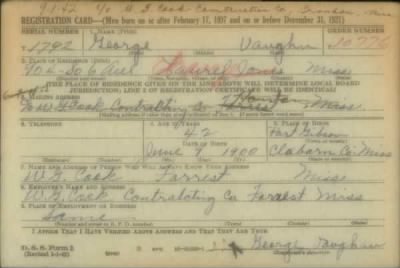 9-1-42 % W G Cook Construction Co, Grenada, Miss
REGISTRATION CARD—(Men born on or after February 17, 1897 and on or before December 31, 1921)
SERIAL NUMBER 1. NAME (Print) ORDER NUMBER
T 1792 George Vaughn 10776
(First) (Middle) (Last)
2. PLACE OF RESIDENCE (Print)
404 So 6 Ave Laurel Jones Miss
(Town, township, village, or city) (County) (State)
[THE PLACE OF RESIDENCE GIVEN ON THE LINE ABOVE WILL DETERMINE LOCAL BOARD
JURISDICTION; LINE 2 OF REGISTRATION CERTIFICATE WILL BE IDENTICAL]
3. MAILING ADDRESS
W G Cook Contracting Co Forrest Miss
[Mailing address if other than place indicated on line 2. If same insert word same]
4. TELEPHONE 5. AGE IN YEARS 6. PLACE OF BIRTH
42 Port Gibson
DATE OF BIRTH (Town or county)
June 7 1900 Claborn Co Miss
(Exchange) (Number) (Mo.) (Day) (Yr.) (State or country)
7. NAME AND ADDRESS OF PERSON WHO WILL ALWAYS KNOW YOUR ADDRESS
W.G. Cook Forrest Miss
8. EMPLOYER'S NAME AND ADDRESS
W.G. Cook Contrabting Co Forrest Miss
9. PLACE OF EMPLOYMENT OR BUSINESS
Same
(Number and street or R. F. D. number) (Town) (County) (State)
I AFFIRM THAT I HAVE VERIFIED ABOVE ANSWERS AND THAT THEY ARE TRUE.
D. S. S. Form 1
(Revised 1-1-42) (over) George Vaughn